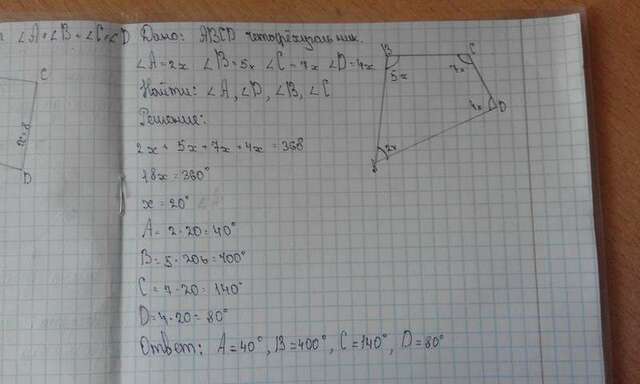 ∠A+∠B+∠C+∠D
Дано: ABCD четырёхугольник.
∠A=2x ∠B=5x ∠C=7x ∠D=4x
Найти: ∠A, ∠D, ∠B, ∠C
Решение:
2x + 5x + 7x + 4x = 360
18x = 360°
x = 20°
A = 2·20 = 40°
B = 5·20 = 100°
C = 7·20 = 140°
D = 4·20 = 80°
Ответ: A=40°, B=100°, C=140°, D=80°
B
C
5x
7x
4x
D
2x
C
D